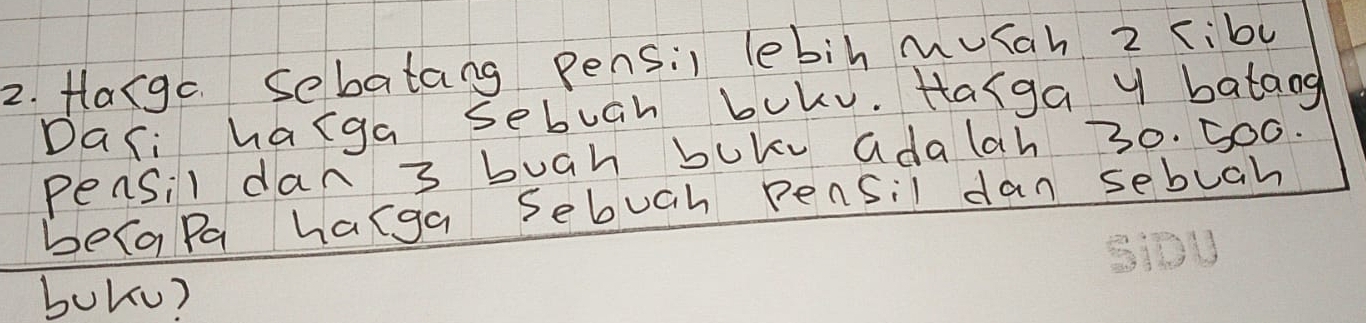 2. Harga sebatang pensil lebih murah 2 ribu
Dari harga sebuah buku. Harga 4 batang
pensil dan 3 buah buku adalah 30.500.
berapa harga sebuah pensil dan sebuah
buku?
SiDU